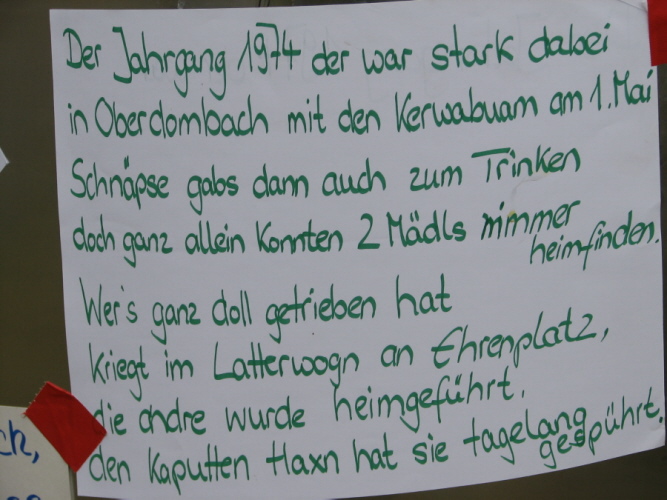 Der Jahrgang 1974 der war stark dabei
in Oberdombach mit den Kerwabuam am 1. Mai
Schnäpse gabs dann auch zum Trinken
doch ganz allein konnten 2 Mädls nimmer heimfinden.
Wer's ganz doll getrieben hat
kriegt im Latterwogn an Ehrenplatz,
die andre wurde heimgeführt.
den kaputten Haxn hat sie tagelang gespührt.
ch,